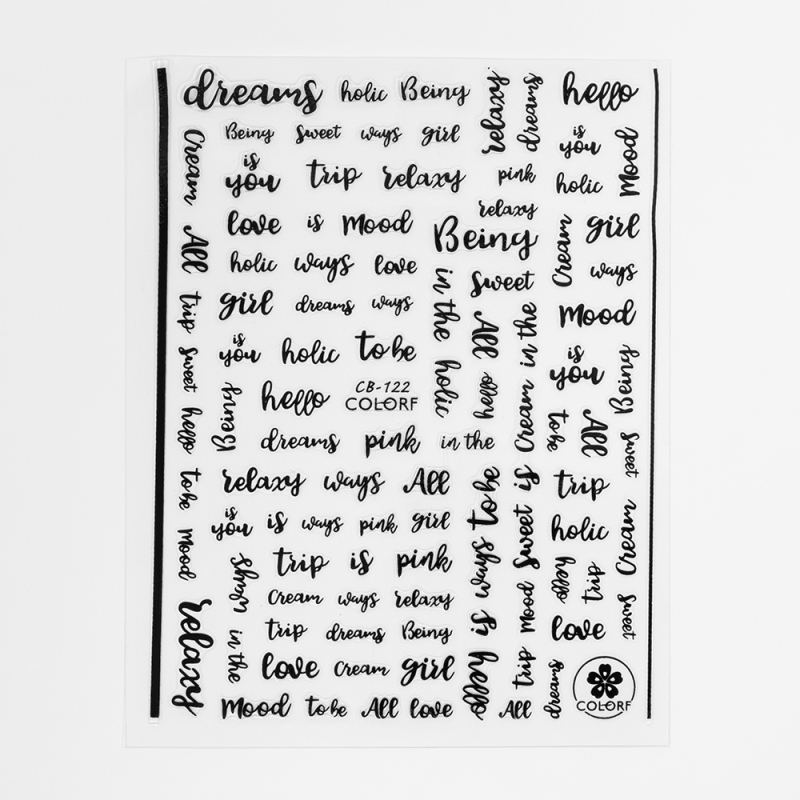 dreams holic Being relaxy dreams hello
Being Sweet ways girl
is you
Cream
Mood
is you trip relaxy pink holic
relaxy
love is Mood Being Cream girl
All
holic ways love in the Sweet ways
girl dreams ways All in the Mood
trip
is you holic to be is you
Sweet
Being
hello CB-122
COLORF
holic hello Cream
hello Being
to be All
dreams pink in the Sweet
relaxy ways All to be is trip
to be
is you is ways pink girl Sweet holic
Cream
Mood
trip is pink ways
ways hello trip
Cream ways relaxy Mood Sweet
relaxy
trip dreams Being is love
in the
love Cream girl hello trip dreams
COLORF
Mood to be All love All